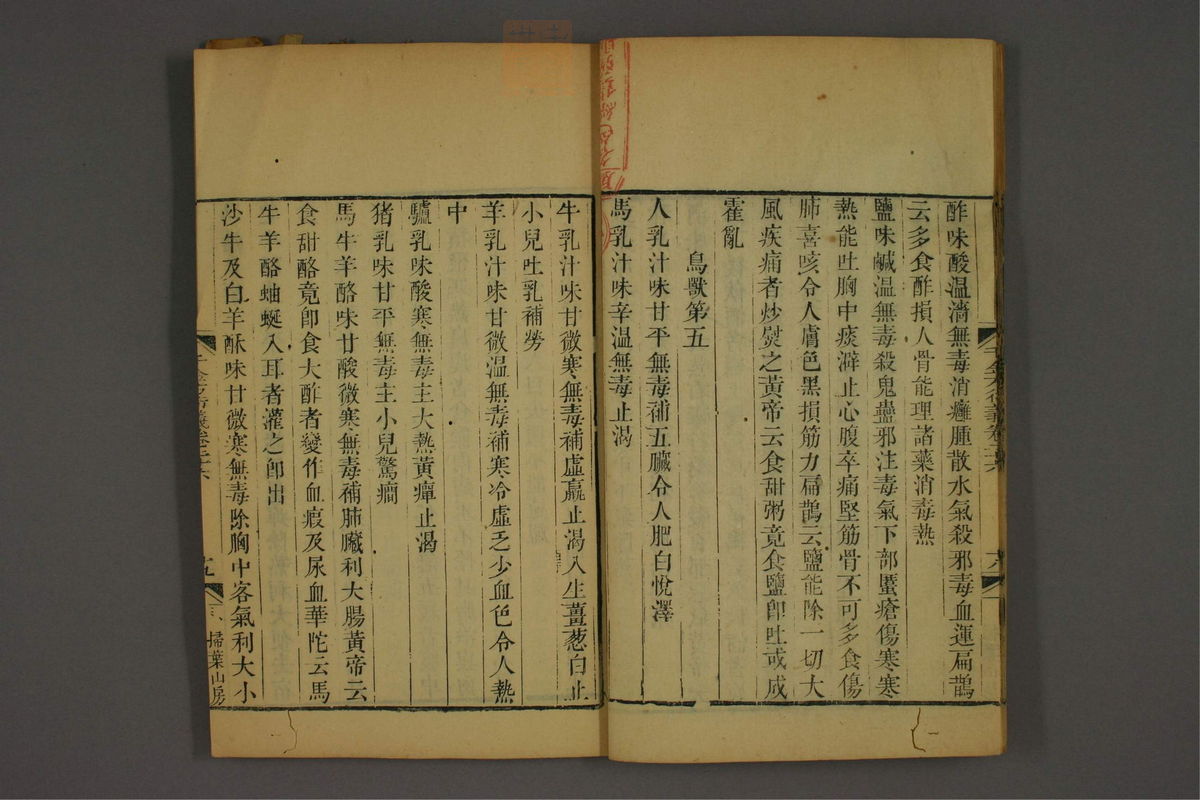 酢味酸温濇無毒消癰腫散水氣殺邪毒血運扁鵲
云多食酢損人骨能理諸藥消毒熱
鹽味鹹温無毒殺鬼蠱邪注毒氣下部䘌瘡傷寒寒
熱能吐胸中痰澼止心腹卒痛堅筋骨不可多食傷
肺喜咳令人膚色黑損筋力扁鵲云鹽能除一切大
風疾痛者炒熨之黃帝云食甜粥竟食鹽卽吐或成
霍亂
鳥獸第五
人乳汁味甘平無毒補五臟令人肥白悅澤
馬乳汁味辛温無毒止渴
牛乳汁味甘微寒無毒補虛羸止渴入生薑葱白止
小兒吐乳補勞
羊乳汁味甘微温無毒補寒冷虛乏少血色令人熱
中
驢乳味酸寒無毒主大熱黃疸止渴
猪乳味甘平無毒主小兒驚癎
馬牛羊酪味甘酸微寒無毒補肺臟利大腸黃帝云
食甜酪竟卽食大酢者變作血瘕及尿血華陀云馬
牛羊酪蚰蜒入耳者灌之卽出
沙牛及白羊酥味甘微寒無毒除胸中客氣利大小
千金方衍義卷二十六
掃葉山房